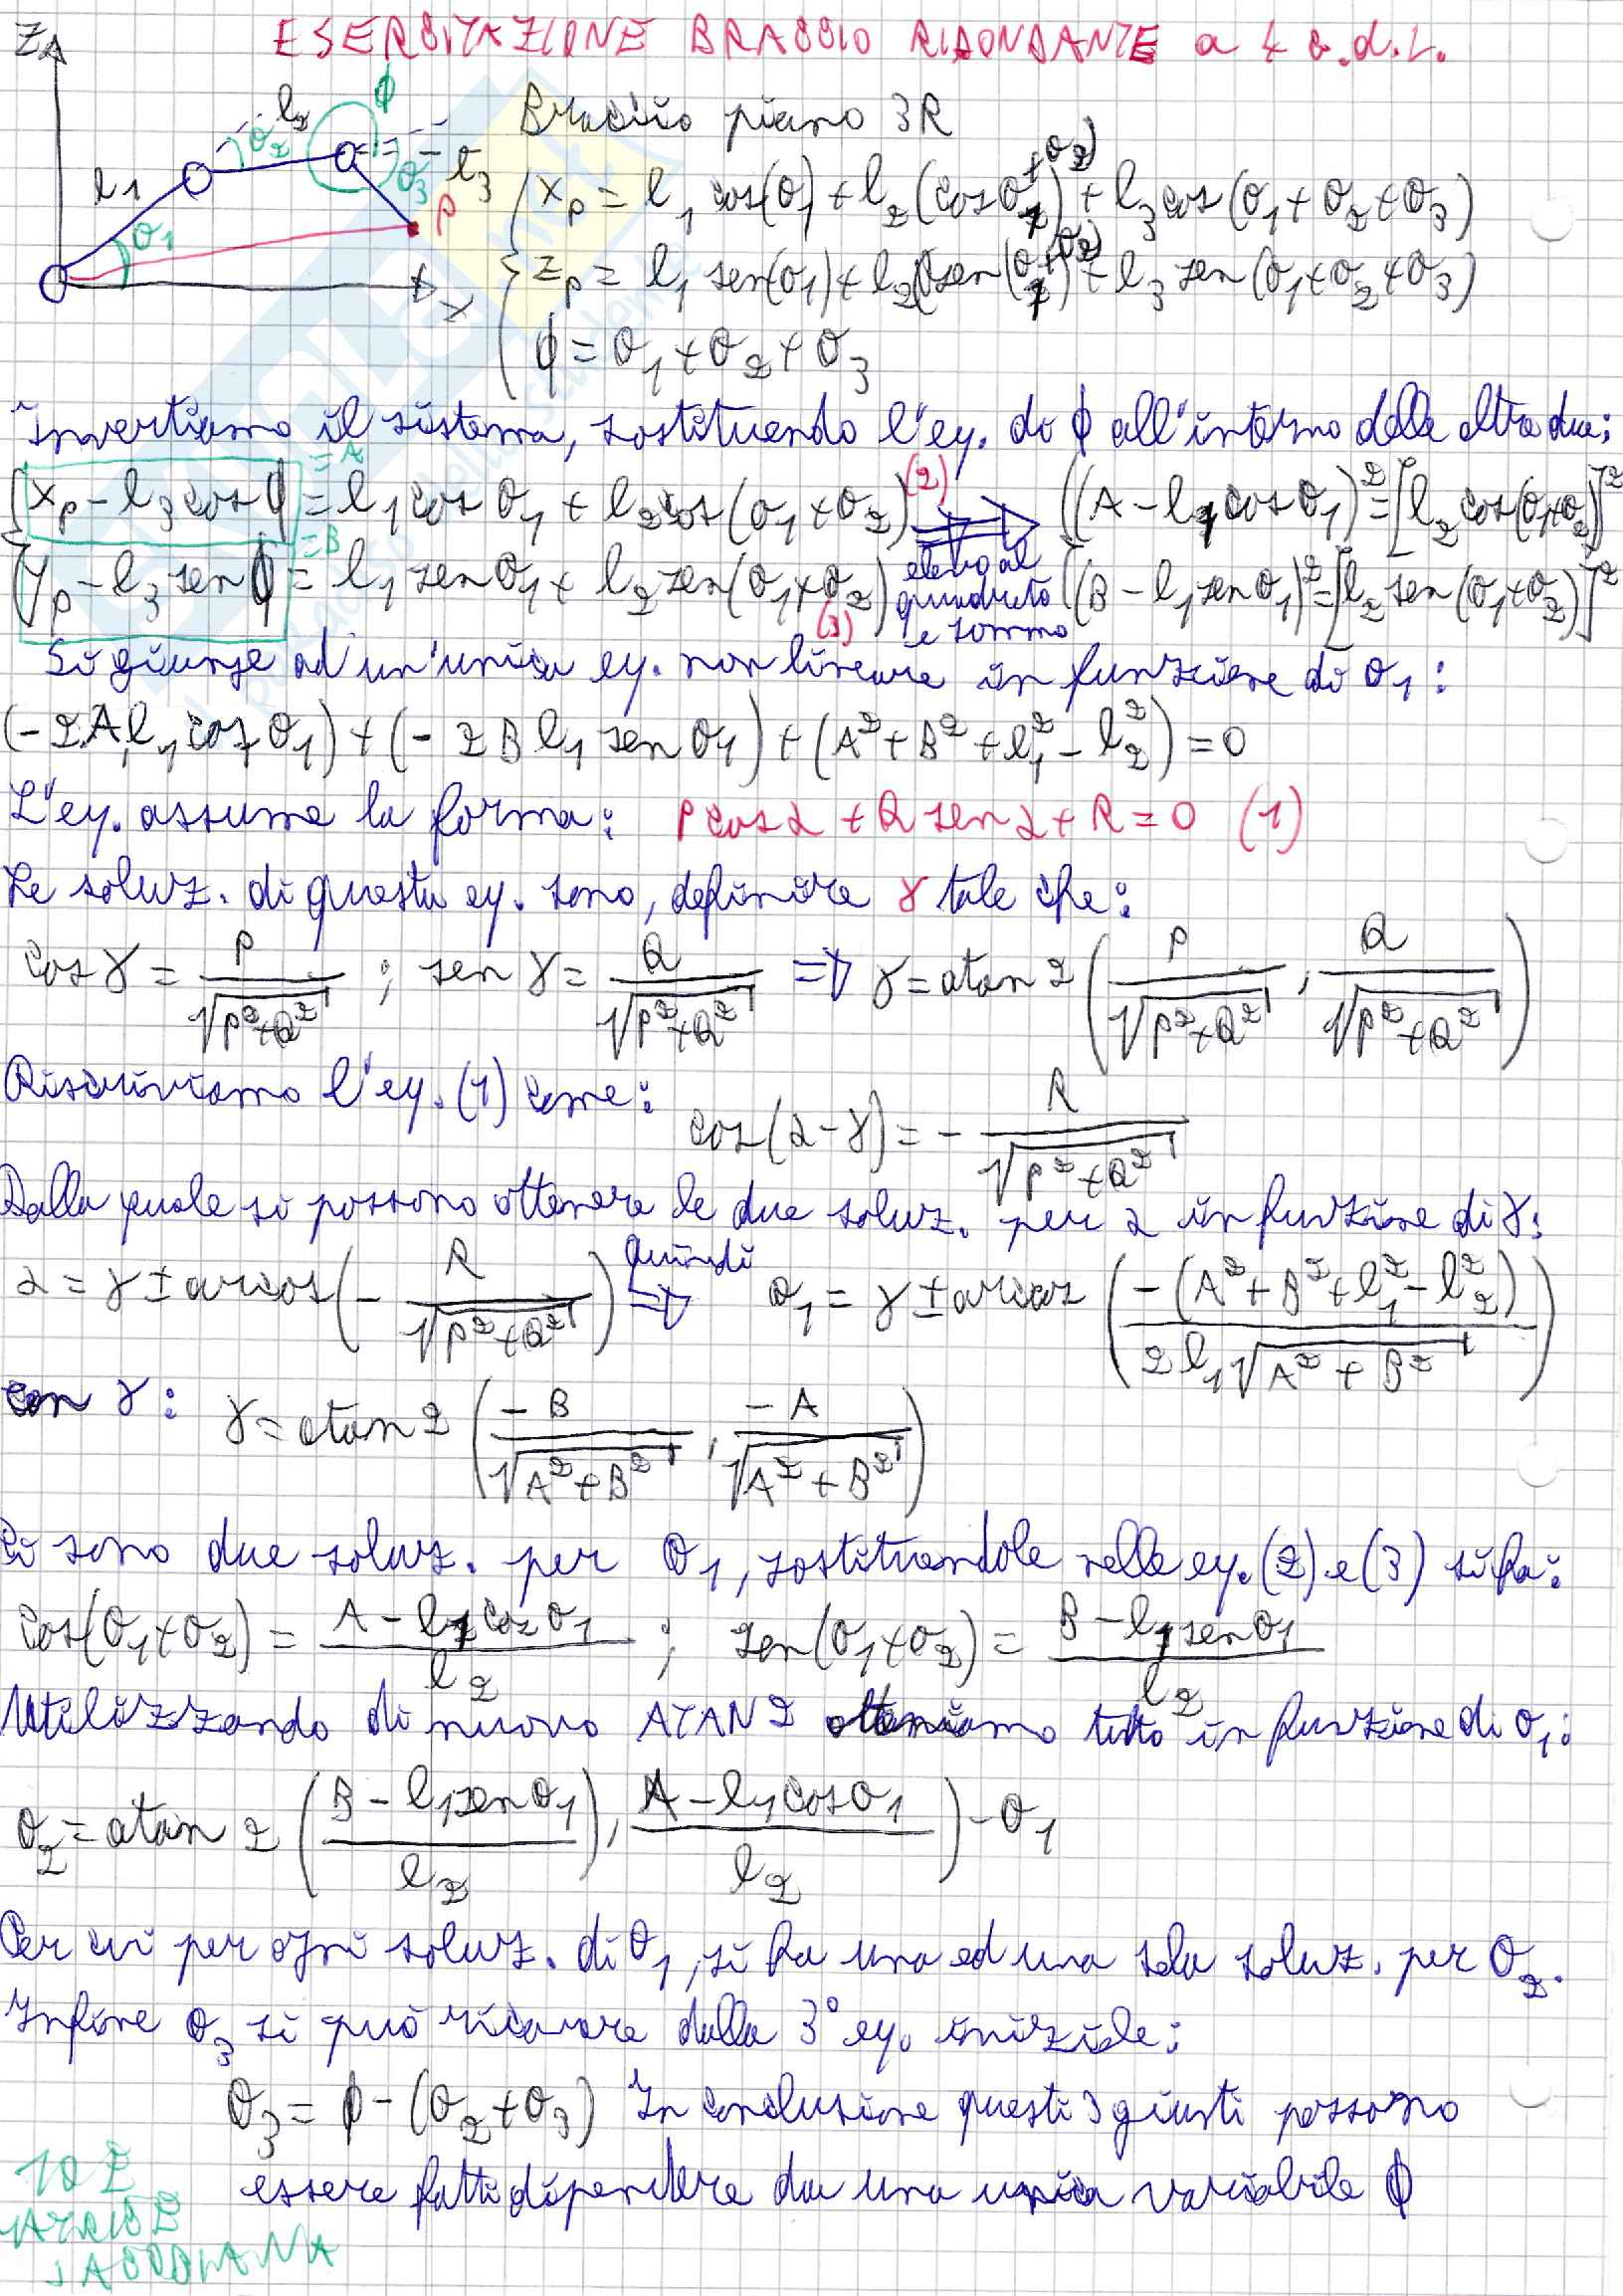 ESERCITAZIONE BRACCIO RIDONDANTE a 4 g.d.l.
Z
l2
ϕ
Braccio piano 3R
θ2
l1
θ3
l3
P
θ1
X
xp = l1 cos(θ1) + l2 (cos θ1+θ2) + l3 cos (θ1+θ2+θ3)
zp = l1 sen(θ1) + l2 (sen(θ1+θ2) + l3 sen (θ1+θ2+θ3)
ϕ = θ1+θ2+θ3
Invertiamo il sistema, sostituendo l'eq. di ϕ all'interno delle altre due:
xp - l3 cos ϕ = l1 cos θ1 + l2 cos (θ1+θ2) (2) => (A - l1 cos θ1)² = [l2 cos(θ1+θ2)]²
= A
= B
yp - l3 sen ϕ = l1 sen θ1 + l2 sen (θ1+θ2) (3) elevo al quadrato e sommo (B - l1 sen θ1)² = [l2 sen (θ1+θ2)]²
Si giunge ad un'unica eq. non lineare in funzione di θ1:
(-2A l1 cos θ1) + (-2B l1 sen θ1) + (A² + B² + l1² - l2²) = 0
L'eq. assume la forma: P cos α + Q sen α + R = 0 (1)
Le soluz. di questa eq. sono, definire γ tale che:
cos γ = P/√(P²+Q²) ; sen γ = Q/√(P²+Q²) => γ = atan 2 (P/√(P²+Q²) , Q/√(P²+Q²))
Riscriviamo l'eq. (1) come:
cos(α-γ) = - R/√(P²+Q²)
Dalla quale si possono ottenere le due soluz. per α in funzione di γ:
α = γ ± arcos(- R/√(P²+Q²)) quindi => θ1 = γ ± arcos (-(A²+B²+l1²-l2²)/2 l1 √(A²+B²))
con γ: γ = atan 2 (-B/√(A²+B²) , -A/√(A²+B²))
Ci sono due soluz. per θ1, sostituendole nelle eq. (2) e (3) si ha:
cos(θ1+θ2) = A - l1 cos θ1/l2 ; sen(θ1+θ2) = B - l1 sen θ1/l2
Utilizzando di nuovo ATAN2 otteniamo tutto in funzione di θ1:
θ2 = atan 2 (B - l1 sen θ1/l2), A - l1 cos θ1/l2) - θ1
Per cui per ogni soluz. di θ1, si ha una ed una sola soluz. per θ2.
Infine θ3 si può ricavare dalla 3° eq. iniziale:
θ3 = ϕ - (θ2+θ3) In conclusione questi 3 giunti possono
essere fatti dipendere da una unica variabile ϕ